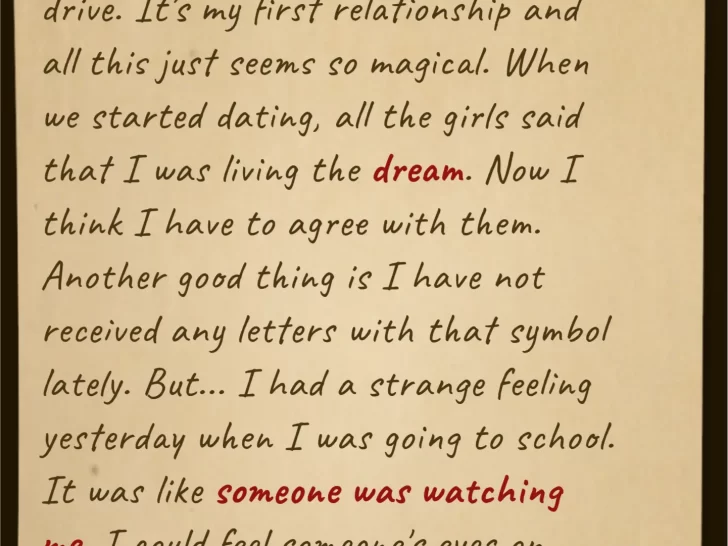 drive. It's my first relationship and
all this just seems so magical. When
we started dating, all the girls said
that I was living the dream. Now I
think I have to agree with them.
Another good thing is I have not
received any letters with that symbol
lately. But... I had a strange feeling
yesterday when I was going to school.
It was like someone was watching
me. I could feel someone's eyes on